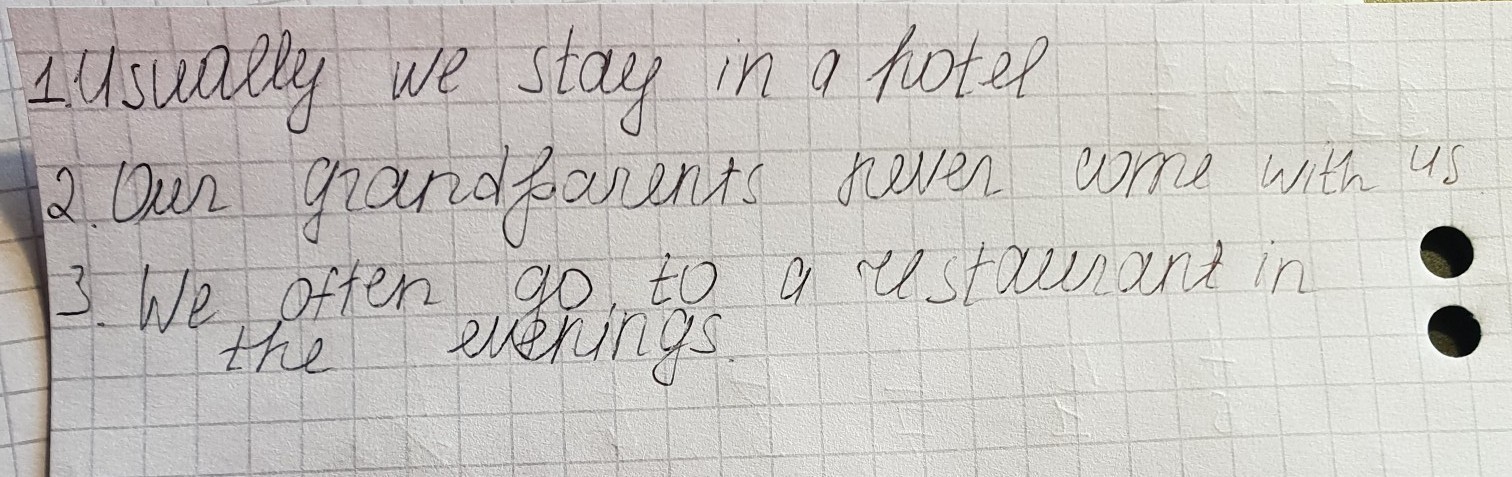 1. Usually we stay in a hotel
2. Our grandparents never come with us
3. We often go to a restaurant in
the evenings.